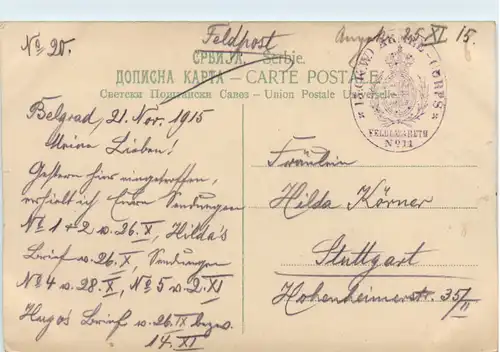 No 20.
Feldpost
Angek. 25. XI 15.
СРБИЈА. — Serbie.
ДОПИСНА КАРТА — CARTE POSTALE
Светски Поштански Савез - Union Postale Universelle
XIII. (K.W.) ARMEE-CORPS
FELDLAZARETH
No 11
Belgrad, 21. Nov. 1915
Meine Lieben!
Gestern hier eingetroffen,
erhielt ich Euren Sendungen
No 1 + 2 v. 26. X, Hilda's
Brief v. 26. X, Sendungen
No 4 v. 28. X, No 5 v. 2. XI
Hugos Brief v. 26 IX bezw.
14. XI
Fräulein
Hilda Körner
Stuttgart
Hohenheimerstr. 35/II